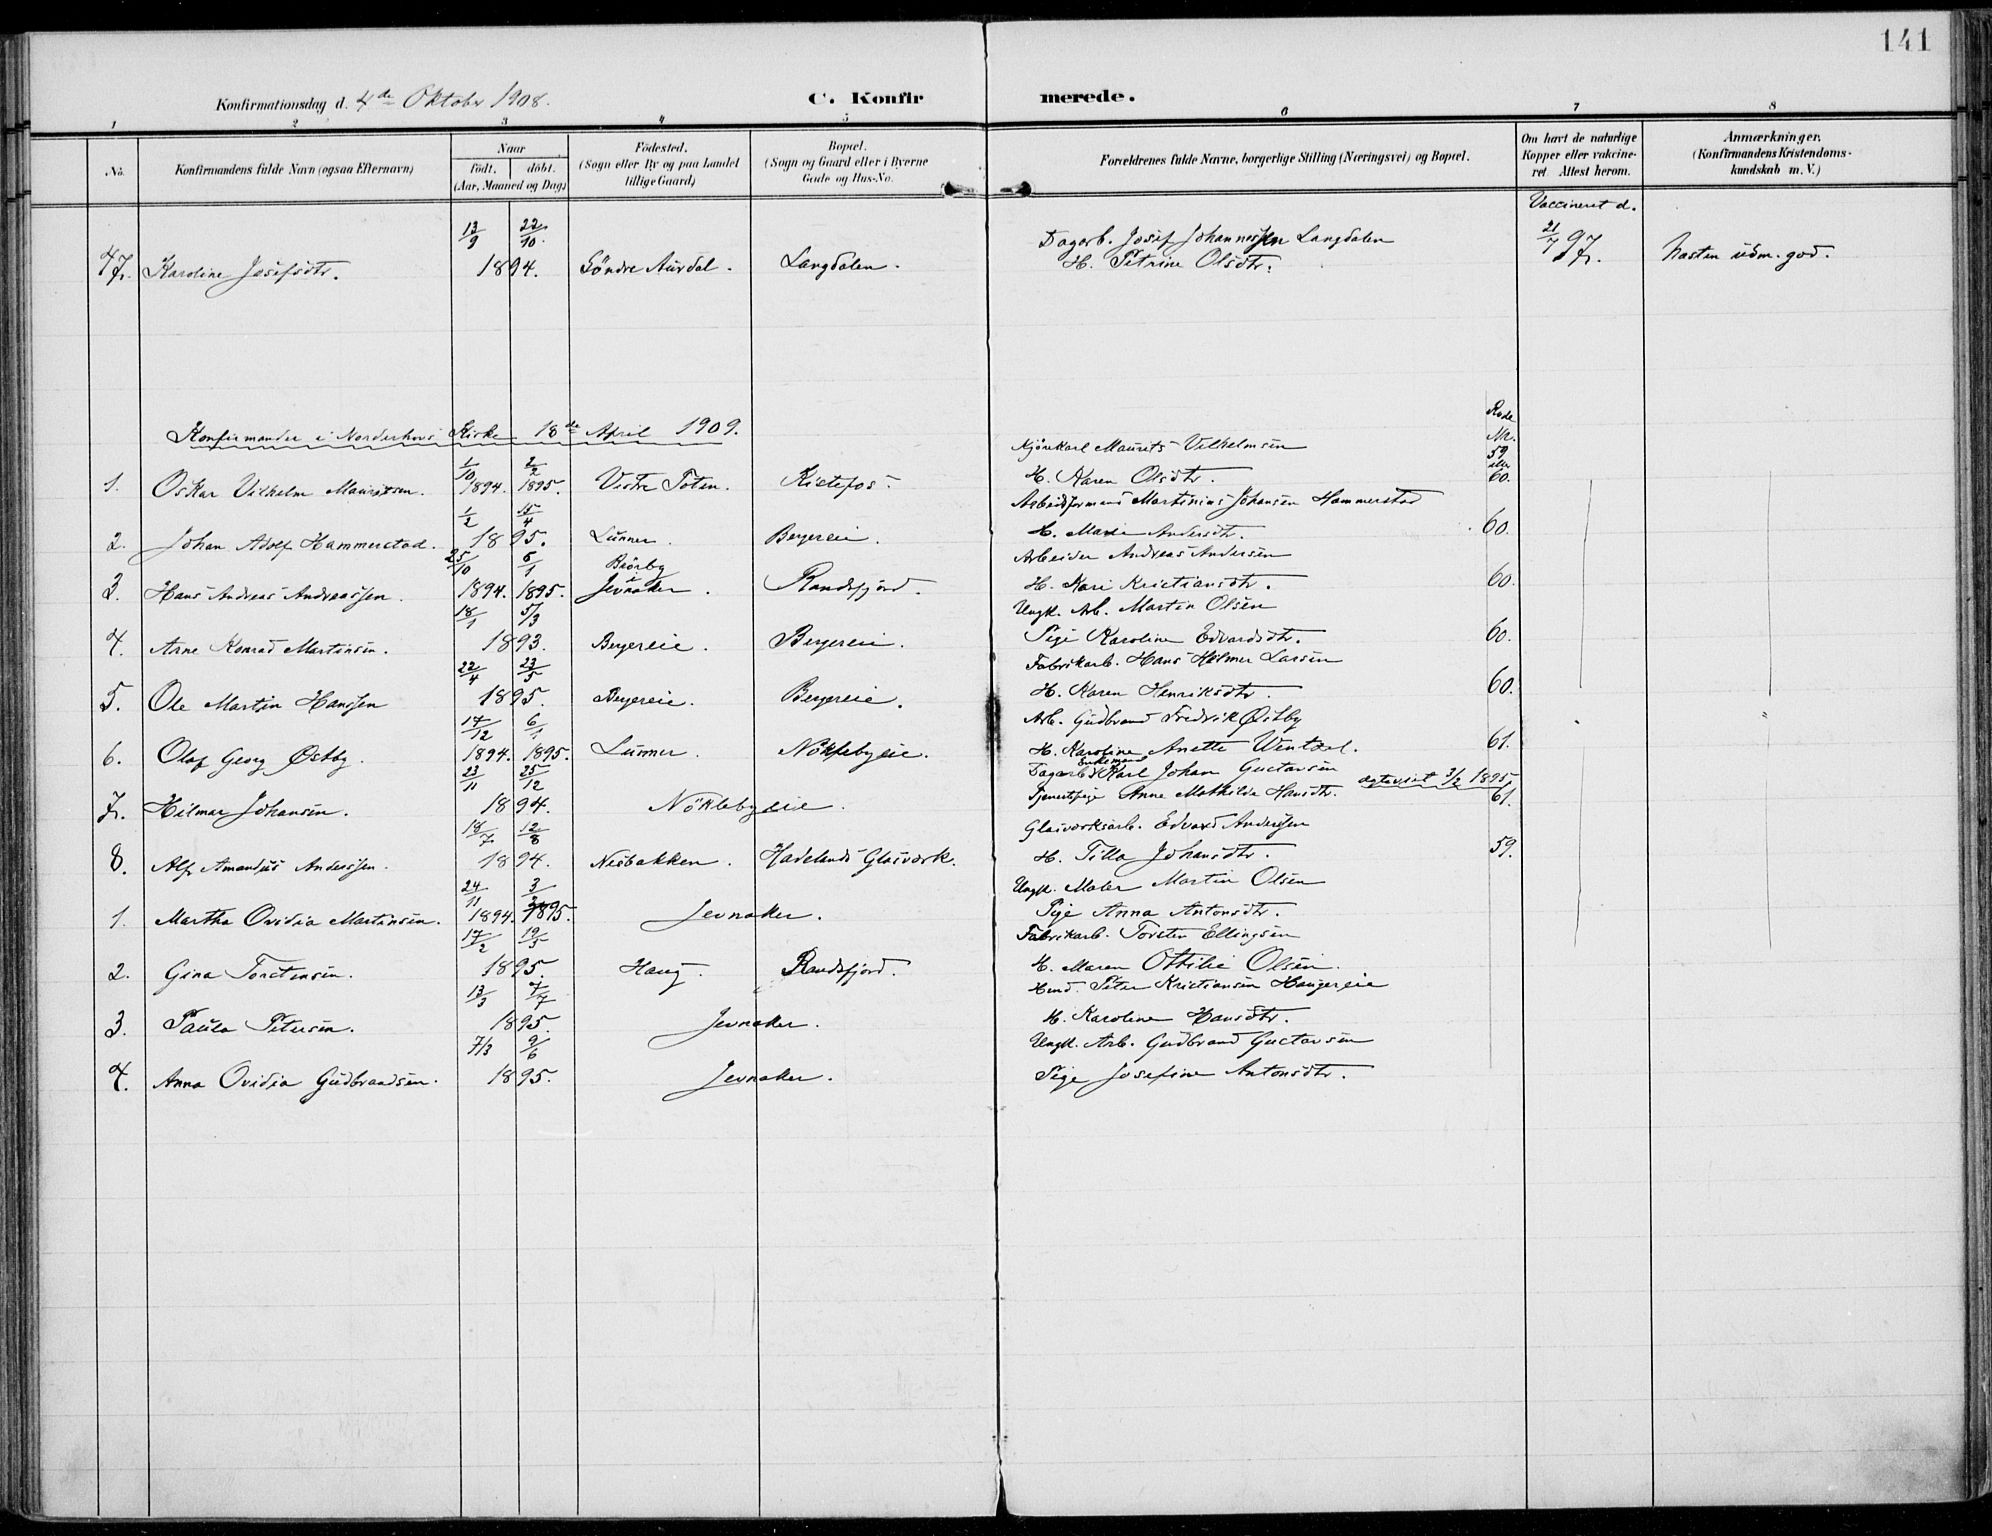 141
Konfirmationsdag d. 4de Oktober 1908.
C. Konfir merede.
1 2 3 4 5 6 7 8
No.
Konfirmandens fulde Navn (ogsaa Efternavn)
Naar
födt. döbt.
(Aar, Maaned og Dag)
Födested.
(Sogn eller By og paa Landet
tillige Gaard)
Bopæl.
(Sogn og Gaard eller i Byerne
Gade og Hus-No.
Forældrenes fulde Navne, borgerlige Stilling (Næringsvei) og Bopæl.
Om havt de naturlige
Kopper eller vakcine-
ret Attest herom.
Anmærkninger.
(Konfirmandens Kristendoms-
kundskab m. V.)
Vaccineret d.
13/9 22/10 Dagarb. Josef Johannessen Langdalen 21/7 97
47. Karoline Josefsdtr. 1894. Söndre Aurdal. Langdalen. H. Petrine Olsdtr. Næsten udm. god.
Konfirmander i Norderhovs Kirke 18de April 1909.
Rode
Nr.
1/10 2/2 Kjörekarl Maurits Vilhelmsen 59 eller
1. Oskar Vilhelm Mauritsen. 1894. 1895. Vestre Toten. Kistefos. H. Karen Olsdtr. 60.
1/2 15/4 Arbeidsformand Martinius Johansen Hammerstad
2. Johan Adolf Hammerstad. 1895. Lunner. Bergereie. H. Marie Andersdtr. 60.
25/10 6/1 Björby Arbeider Andreas Andersen
3. Hans Andreas Andreassen. 1894. 1895. i Jevnaker. Randsfjord. H. Kari Kristiansdtr. 60.
18/1 5/3 Ungk. Arb. Martin Olsen
4. Arne Konrad Martinsen. 1893. Bergereie. Bergereie. Pige Karoline Edvardsdtr. 60.
22/4 23/5 Fabrikarb. Hans Helmer Larsen
5. Ole Martin Hansen 1895. Bergereie. Bergereie. H. Karen Henriksdtr. 60.
17/12 6/1 Arb. Gudbrand Fredrik Østby
6. Olaf Georg Østby. 1894. 1895. Lunner. Nöklebyeie. H. Karoline Anette Wentzel. 61.
23/11 25/12 Dagarb. Enkemand Karl Johan Gustavsen ægteviet 3/2 1895
7. Hilmar Johansen. 1894. Nöklebyeie. Tjenestepige Anne Mathilde Hansdtr. 61.
18/7 12/8 Glasværksarb. Edvard Andersen
8. Alf Amandus Anderssen. 1894. Nesbakken. Hadelands Glasværk. H. Tilla Johansdtr. 59.
24/11 3/3 Ungk. Maler Martin Olsen
1. Martha Ovidia Martinsen. 1894. 1895. Jevnaker. Pige Anna Antonsdtr.
17/2 19/5 Fabrikarb. Torsten Ellingsen
2. Gina Torstensen. 1895. Haug. Randsfjord. H. Maren Ottilie Olsen.
13/3 7/7 Hmd. Peter Kristiansen Haugereie
3. Paula Petersen. 1895. Jevnaker. H. Karoline Hansdtr.
7/3 9/6 Ungk. Arb. Gudbrand Gustavsen
4. Anna Ovidia Gudbrandsen. 1895. Jevnaker. Pige Josefine Antonsdtr.